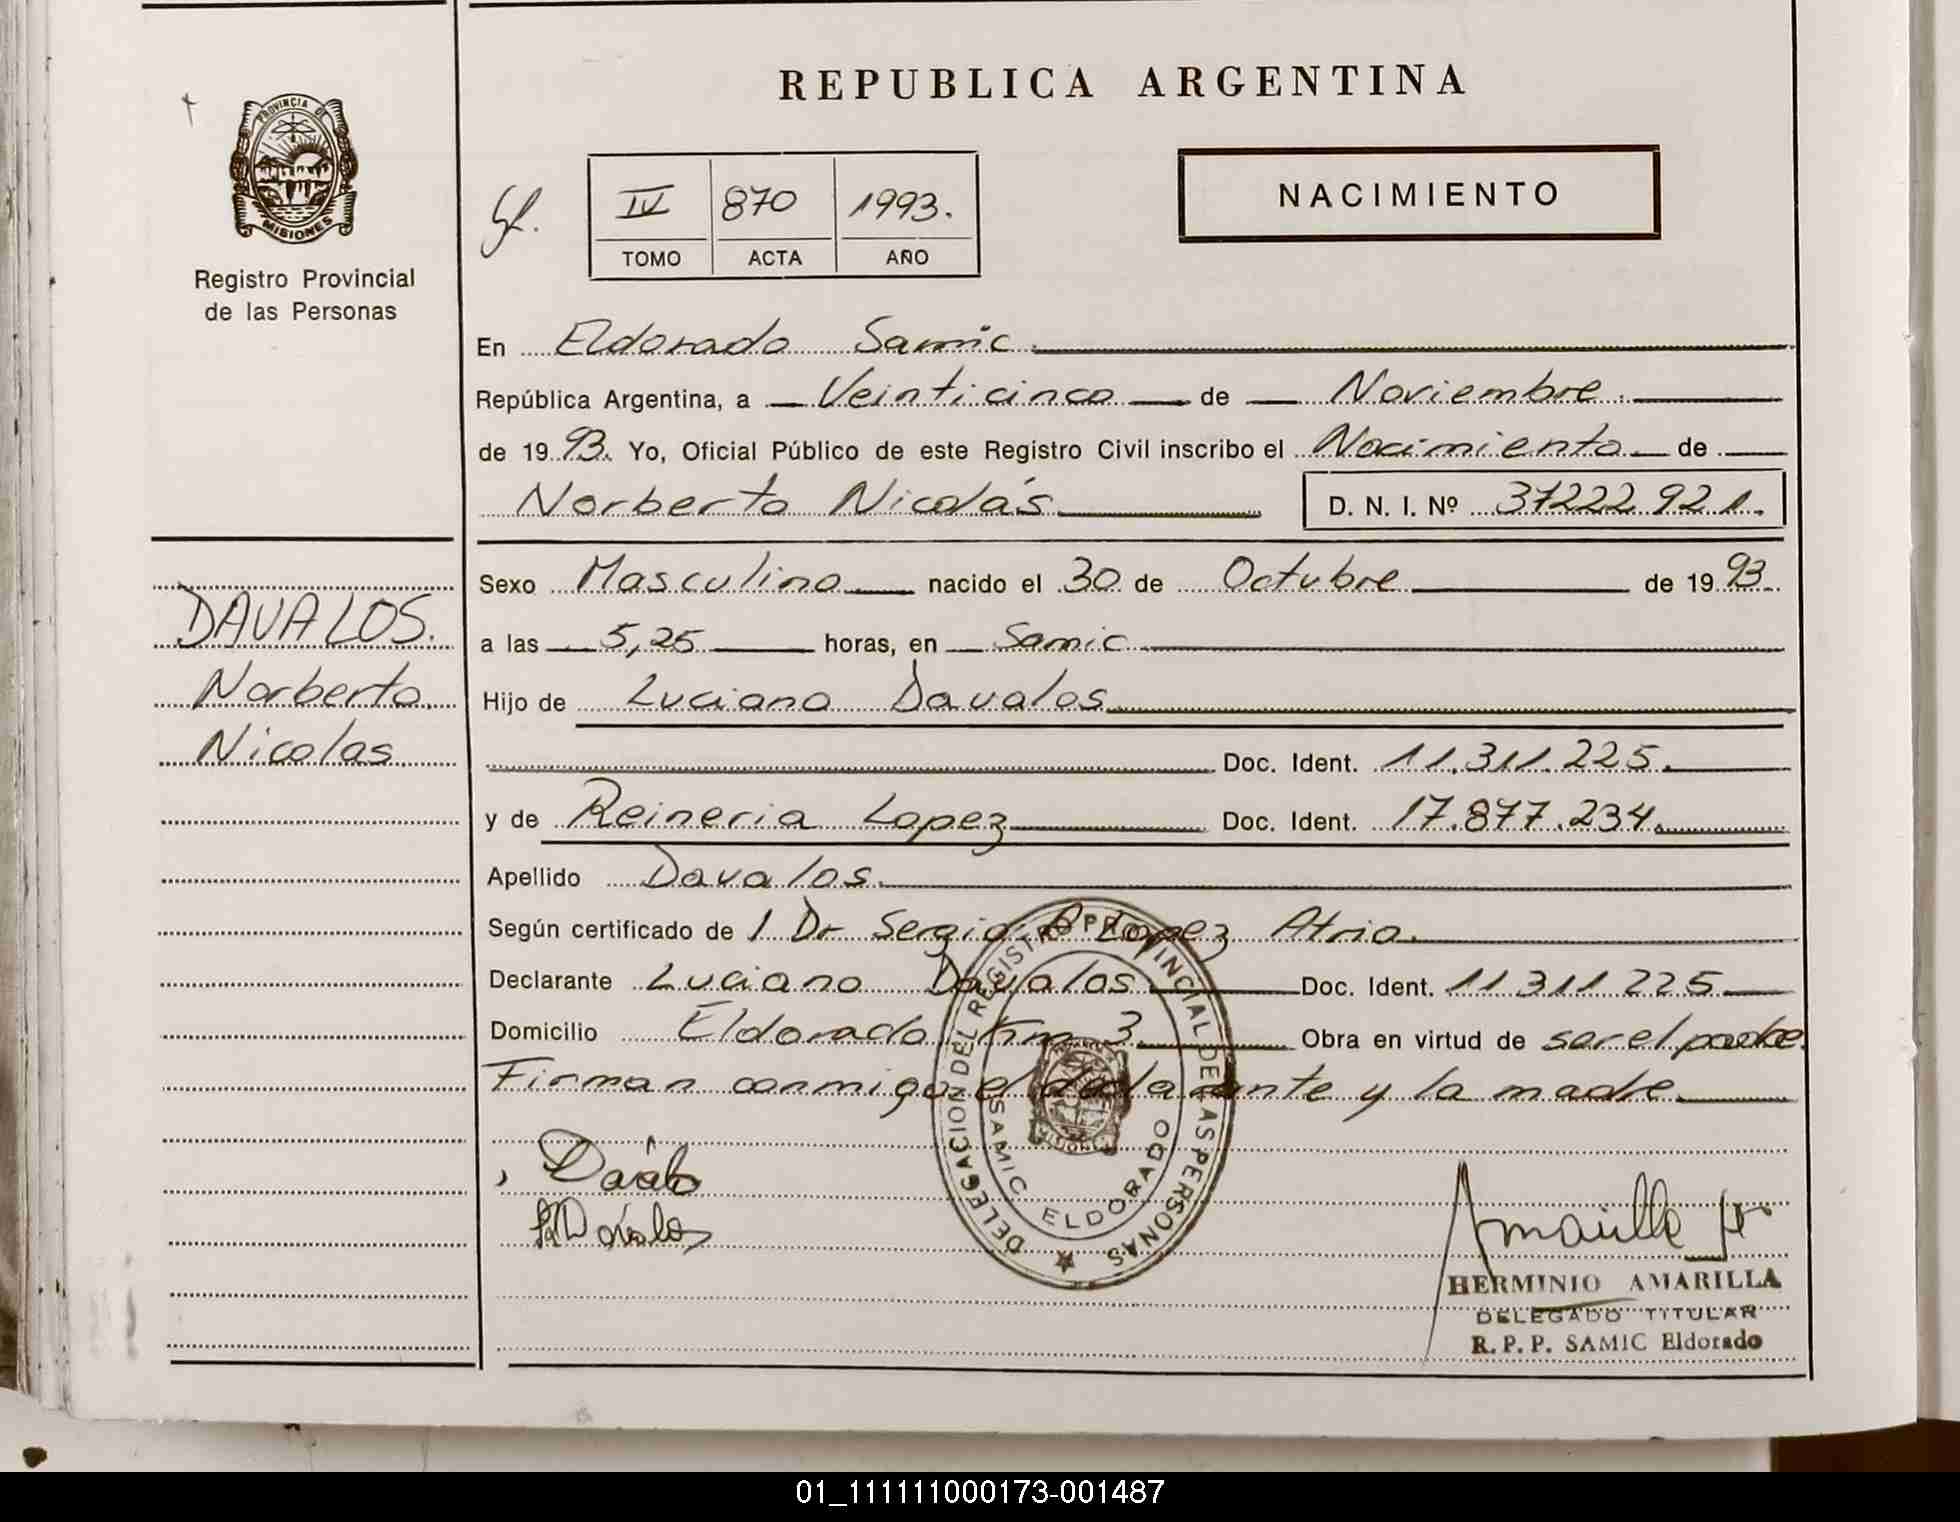 REPUBLICA ARGENTINA
PROVINCIA DE
MISIONES
Registro Provincial
de las Personas
IV 870 1993.
TOMO ACTA AÑO
NACIMIENTO
En Eldorado Samic.
República Argentina, a Veinticinco de Noviembre.
de 1993. Yo, Oficial Público de este Registro Civil inscribo el Nacimiento de
Norberto Nicolás D. N. I. Nº 37222921.
Sexo Masculino nacido el 30 de Octubre de 1993.
a las 5,25 horas, en Samic
Hijo de Luciano Davalos
Doc. Ident. 11.311.225.
y de Reineria Lopez Doc. Ident. 17.877.234.
Apellido Davalos.
Según certificado de 1 Dr Sergio A Lopez Atrio.
Declarante Luciano Davalos Doc. Ident. 11 311 225
Domicilio Eldorado Km 3. Obra en virtud de ser el padre.
Firman conmigo el declarante y la madre.
DAVALOS.
Norberto.
Nicolas
DELEGACION DEL REGISTRO PROVINCIAL DE LAS PERSONAS
SAMIC ELDORADO
MISIONES
HERMINIO AMARILLA
DELEGADO TITULAR
R. P. P. SAMIC Eldorado
01_111111000173-001487